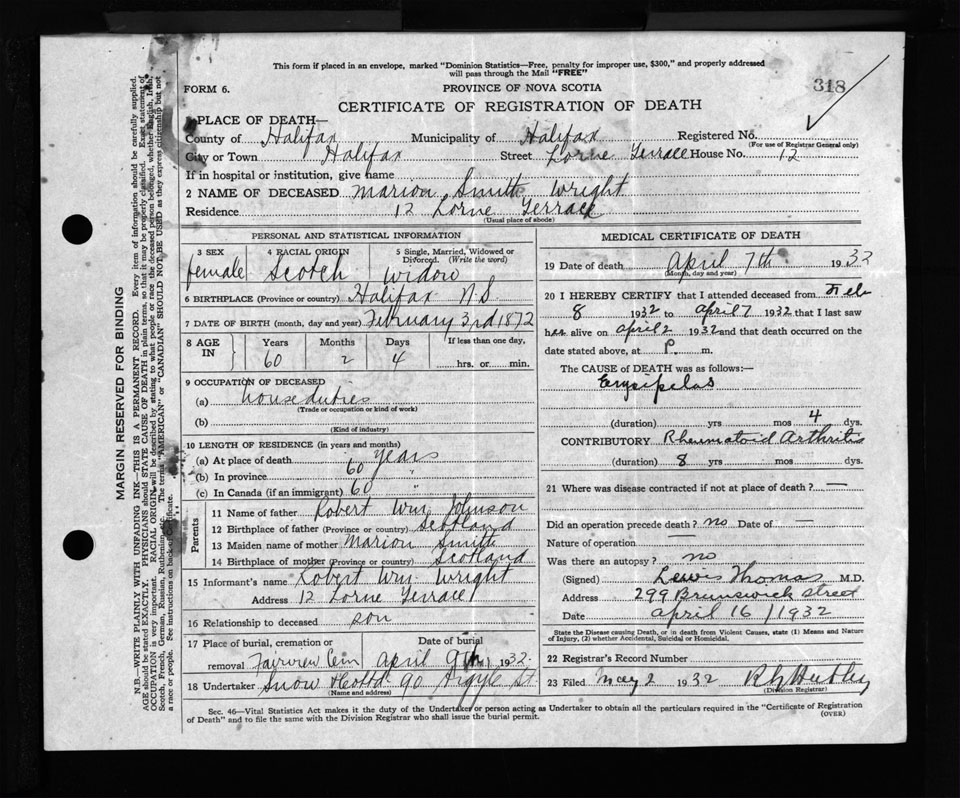 This form if placed in an envelope, marked "Dominion Statistics—Free, penalty for improper use, $300," and properly addressed
will pass through the Mail "FREE"
FORM 6. PROVINCE OF NOVA SCOTIA 318
CERTIFICATE OF REGISTRATION OF DEATH
1 PLACE OF DEATH—
County of Halifax Municipality of Halifax Registered No.
(For use of Registrar General only)
City or Town Halifax Street Lorne Terrace House No. 12
If in hospital or institution, give name
2 NAME OF DECEASED Marion Smith Wright
Residence 12 Lorne Terrace
(Usual place of abode)
PERSONAL AND STATISTICAL INFORMATION
3 SEX 4 RACIAL ORIGIN 5 Single, Married, Widowed or Divorced. (Write the word)
female Scotch widow
6 BIRTHPLACE (Province or country) Halifax N.S.
7 DATE OF BIRTH (month, day and year) February 3rd 1872
8 AGE IN Years Months Days If less than one day,
60 2 4 hrs. or min.
9 OCCUPATION OF DECEASED
(a) house duties
(Trade or occupation or kind of work)
(b)
(Kind of industry)
10 LENGTH OF RESIDENCE (in years and months)
(a) At place of death 60 years
(b) In province 60 "
(c) In Canada (if an immigrant) 60 "
Parents
11 Name of father Robert Wm Johnson
12 Birthplace of father (Province or country) Scotland
13 Maiden name of mother Marion Smith
14 Birthplace of mother (Province or country) Scotland
15 Informant's name Robert Wm. Wright
Address 12 Lorne Terrace
16 Relationship to deceased son
17 Place of burial, cremation or removal Date of burial
Fairview Cem April 9th 1932
18 Undertaker Snow & Co Ltd 90 Argyle St.
(Name and address)
MEDICAL CERTIFICATE OF DEATH
19 Date of death April 7th 1932
(Month, day and year)
20 I HEREBY CERTIFY that I attended deceased from Feb
8 1932 to April 7 1932 that I last saw
her alive on April 2 1932 and that death occurred on the
date stated above, at P. m.
The CAUSE of DEATH was as follows:—
Erysipelas
(duration) yrs mos 4 dys.
CONTRIBUTORY Rheumatoid Arthritis
(duration) 8 yrs mos dys.
21 Where was disease contracted if not at place of death? —
Did an operation precede death? no Date of —
Nature of operation —
Was there an autopsy? no
(Signed) Lewis Thomas M.D.
Address 299 Brunswick street
Date April 16 / 1932
State the Disease causing Death, or in death from Violent Causes, state (1) Means and Nature
of Injury, (2) whether Accidental, Suicidal or Homicidal.
22 Registrar's Record Number
23 Filed May 2 1932
(Division Registrar)
Sec. 46—Vital Statistics Act makes it the duty of the Undertaker or person acting as Undertaker to obtain all the particulars required in the "Certificate of Registration
of Death" and to file the same with the Division Registrar who shall issue the burial permit. (OVER)
MARGIN RESERVED FOR BINDING
N.B.—WRITE PLAINLY WITH UNFADING INK—THIS IS A PERMANENT RECORD. Every item of information should be carefully supplied.
AGE should be stated EXACTLY. PHYSICIANS should STATE CAUSE OF DEATH in plain terms, so that it may be properly classified. Exact statement of
OCCUPATION is very important. RACIAL ORIGIN will be described by stating to what people or race the deceased person belonged, whether English, Irish,
Scotch, French, German, Russian, Ruthenian, etc. The terms "AMERICAN" or "CANADIAN" SHOULD NOT BE USED as they express citizenship but not
a race or people. See instructions on back of Certificate.